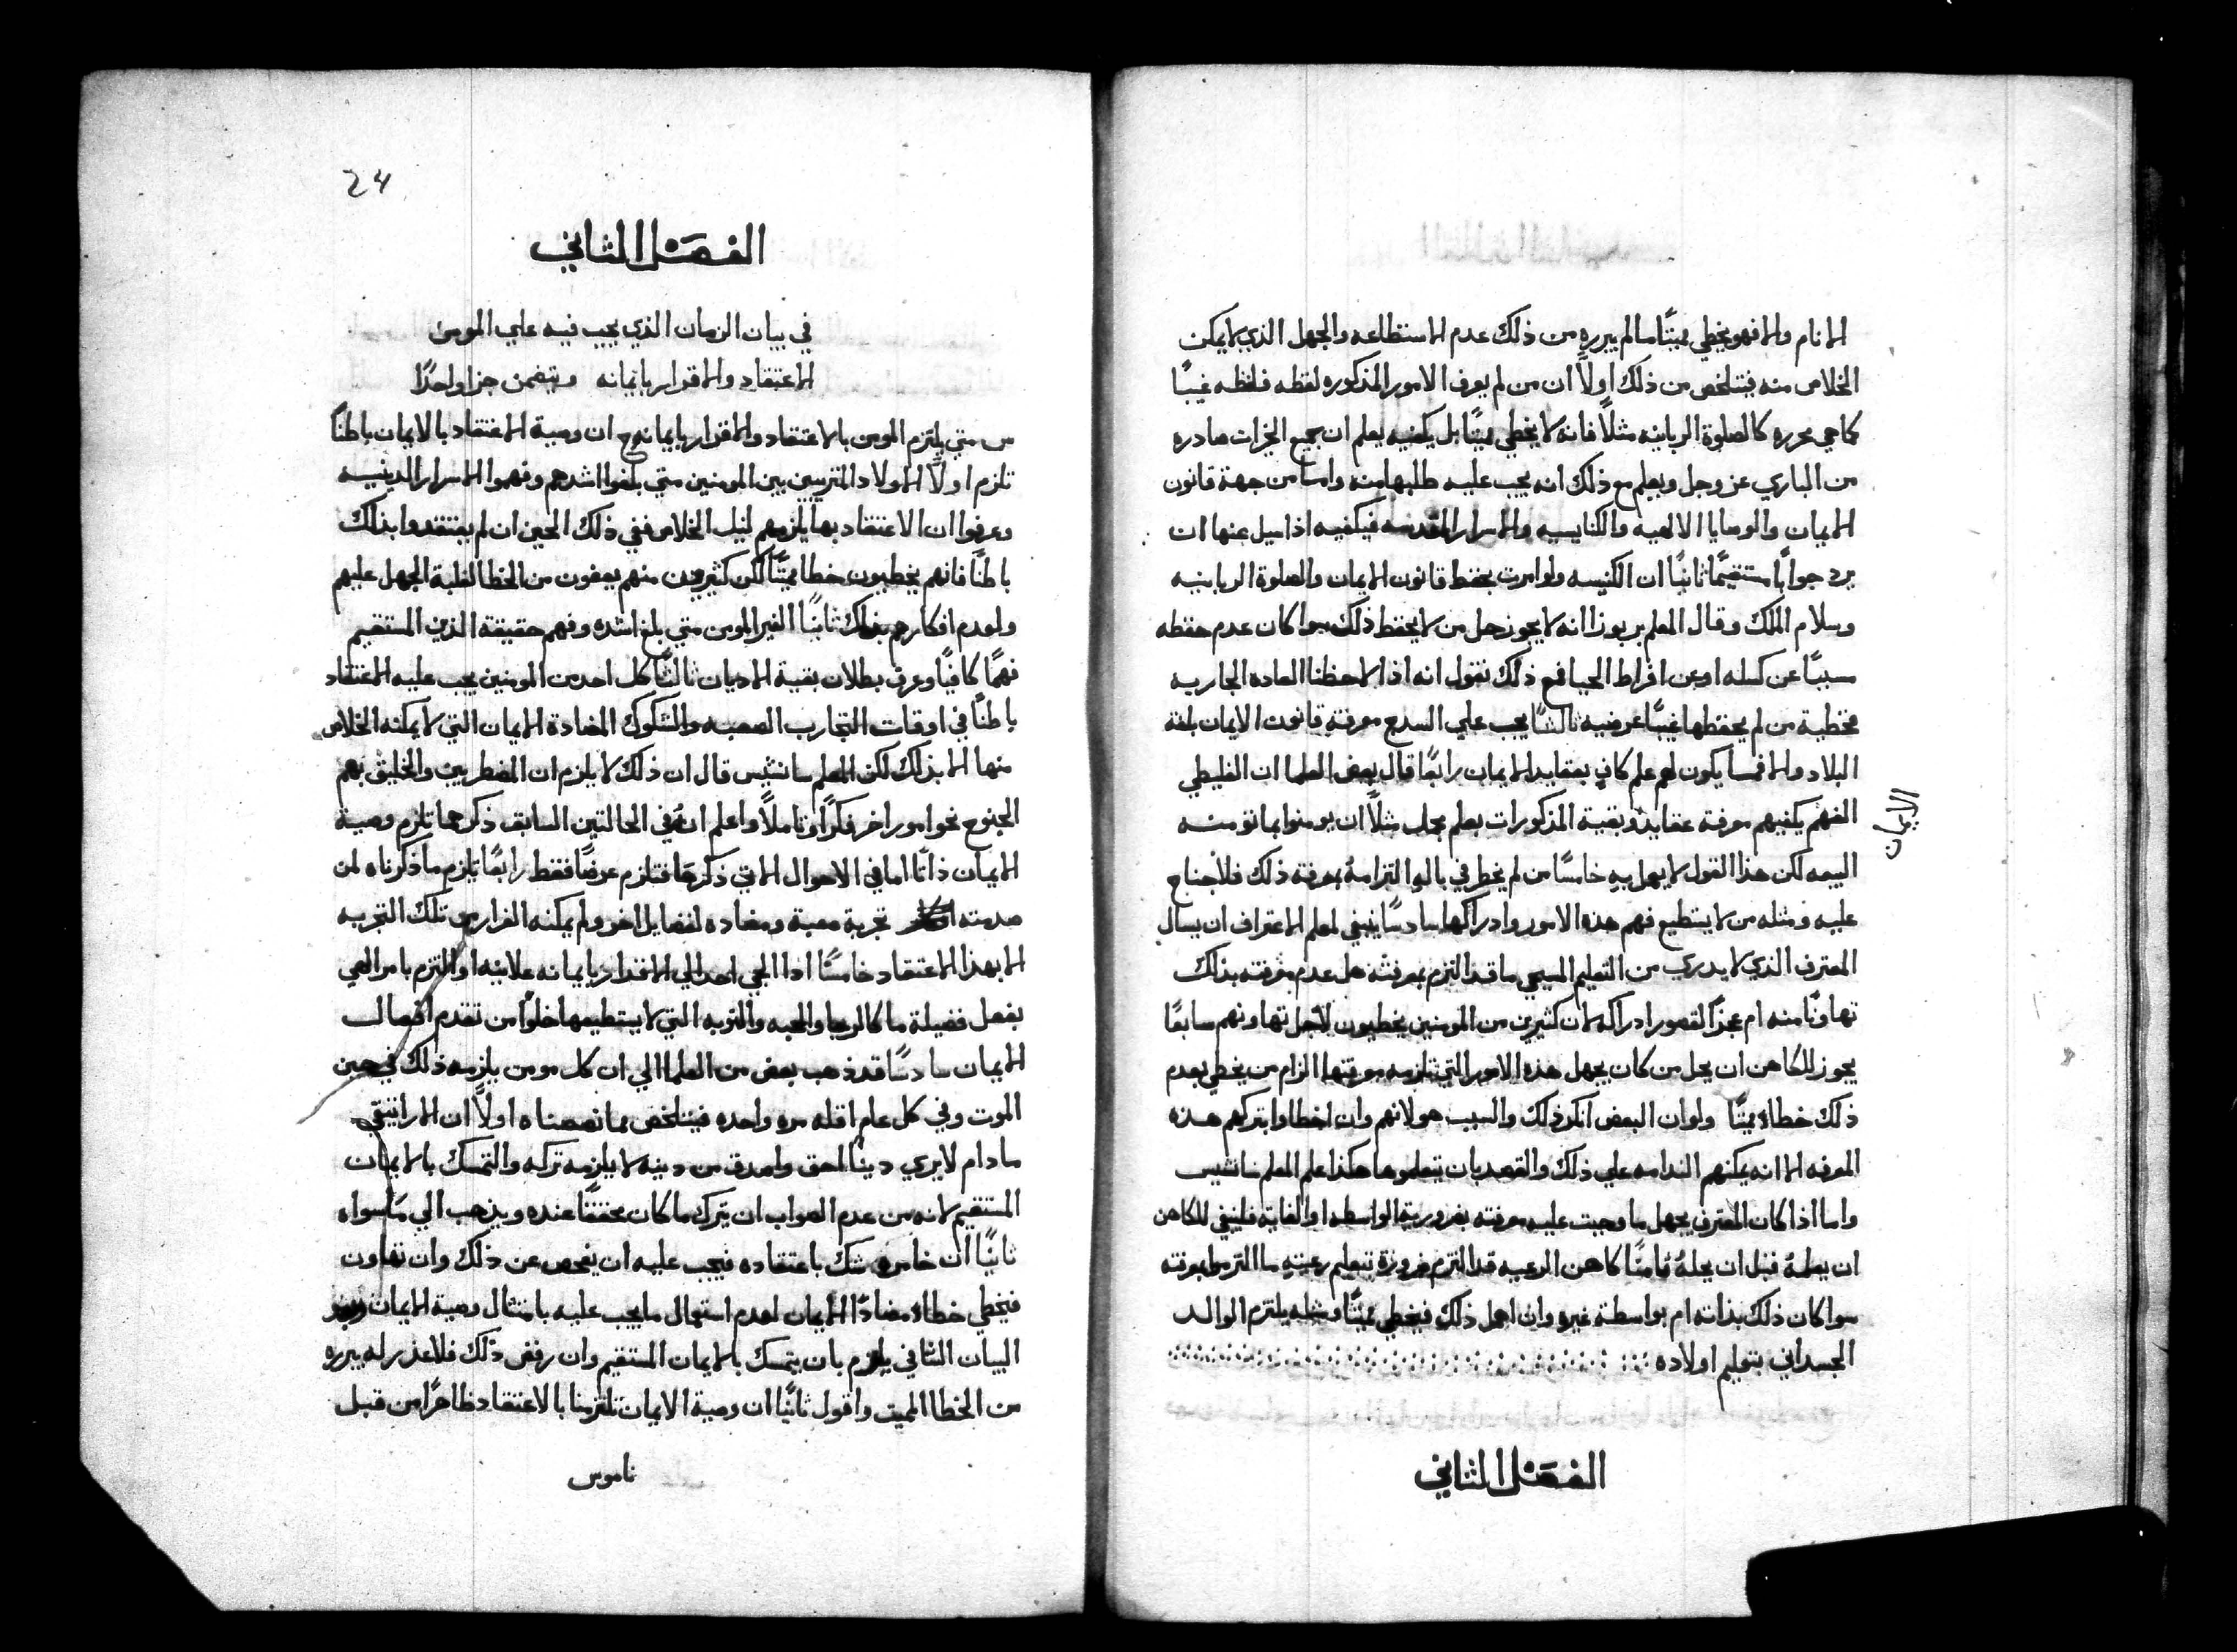 الانام والا فهو يخطي مميتًا ما لم يبرره من ذلك عدم الاستطاعه والجهل الذي لا يمكن
الخلاص منه فيتلخص من ذلك اولاً ان من لم يعرف الامور المذكوره لفظه فلفظه غيبًا
كما هي محرره كالصلوة الربانيه مثلاً فانه لا يخطي مميتًا بل يكفيه يعلم ان جميع الخيرات صادره
من الباري عز وجل ويعلم مع ذلك انه يجب عليه طلبها منه واما من جهة قانون
الايمان والوصايا الالهيه والكنايسيه والاسرار المقدسه فيكفيه اذا سيل عنها ان
يرد جوابًا مستقيمًا ثانيًا ان الكنيسه ولو امرت بحفظ قانون الايمان والصلوة الربانيه
وسلام الملك وقال المعلم بربوزا انه لا يجوز حل من لا يحفظ ذلك سوا كان عدم حفظه
مسببًا عن كسله او عن افراط الحيا فمع ذلك نقول انه اذا لاحظنا العاده الجاريه
فخطية من لم يحفظها غيبًا عرضيه ثالثًا يجب علي السدج معرفة قانون الايمان بلغة
البلاد والا فمسا يكون لهم علم كافٍ بعقايد الايمان رابعًا قال بعض العلما ان الغليظي
الفهم يكفيهم معرفة عقايد وبقية المذكورات بعلم مجمل مثلاً ان يومنوا بما تومنه
الايمان
البيعه لكن هذا القول لا يعمل به خامسًا من لم يخطر في باله التزامهُ بمعرفة ذلك فلا جناح
عليه ومثله من لا يستطيع فهم هذه الامور وادراكها سادسًا ينبغي لمعلم الاعتراف ان يسال
المعترف الذي لا يدري من التعليم المسيحي ما قد التزم بمعرفته هل عدم معرفته بذلك
تهاونًا منه ام عجزًا لقصور ادراكه لان كثيرين من المومنين يخطيون لاجل تهاونهم سابعًا
يجوز للكاهن ان يحل من كان يجهل هذه الامور التي تلزمه معرفتها الزام من يخطي بعدم
ذلك خطاءً مميتًا ولو ان البعض انكر ذلك والسبب هو لانهم وان اخطاوا بتركهم هذه
المعرفه الا انه يمكنهم الندامه علي ذلك والقصد بان يتعلموها هكذا علم المعلم سانشيس
واما اذا كان المعترف يجهل ما وجبت عليه معرفته بضرورية الواسطه او الغاية فلينبغي للكاهن
ان يعلمهُ قبل ان يحلهُ ثامنًا كاهن الرعيه قد التزم ضرورةً بتعليم رعيته ما التزموا بمعرفته
سوا كان ذلك بذاته ام بواسطة غيره وان اهمل ذلك فيخطي مميتًا ومثله يلتزم الوالد
الجسداني بتعليم اولاده
الفصل الثاني
24
الفصل الثاني
في بيان الزمان الذي يجب فيه علي المومن
الاعتقاد والاقرار بايمانه ويتضمن جزا واحدًا
س متي يلتزم المومن بالاعتقاد والاقرار بايمانه ج ان وصية الاعتقاد بالايمان باطنًا
تلزم اولاً الاولاد المتربيين بين المومنين متي بلغوا اشدهم وفهموا الاسرار الدينيه
وعرفوا ان الاعتقاد بها يلزمهم لنيل الخلاص ففي ذلك الحين ان لم يعتقدوا بذلك
باطنًا فانهم يخطيون خطا مميتًا لكن كثيرون منهم يعفون من الخطا لغلبة الجهل عليهم
ولعدم افكارهم بذلك ثانيًا الغير المومن متي بلغ اشده وفهم حقيقة الدين المستقيم
فهمًا كافيًا وعرف بطلان بقية الاديان ثالثًا كل احد من المومنين يجب عليه الاعتقاد
باطنًا في اوقات التجارب الصعبه والشكوك المضادة الايمان التي لا يمكنه الخلاص
منها الا بذلك لكن المعلم سانشيس قال ان ذلك لا يلزم ان المضطربين والخليق بهم
الجنوح نحو امور اخر فكرًا وتاملاً واعلم انهُ في الحالتين السابق ذكرهما تلزم وصية
الايمان ذاتًا اما في الاحوال الاتي ذكرها فتلزم عرضًا فقط رابعًا يلزم ما ذكرناه لمن
صدمته تجربة صعبة ومضاده لفضايل اخر ولم يمكنه الفرار من تلك التجربه
الا بهذا الاعتقاد خامسًا اذا الجي احد الي الاقرار بايمانه علانيه او التزم بامر الهي
بفعل فضيلة ما كالرجا والمحبه والتوبه التي لا يستطيعها خلوًا من تقدم افعال
الايمان سادسًا قد ذهب بعض من العلما الي ان كل مومن يلزمه ذلك في حين
الموت وفي كل عام اقله مره واحده فيتلخص مما نصصناه اولاً ان الاراتيقي
ما دام لا يري دينا احق واصدق من دينه لا يلزمه تركه والتمسك بالايمان
المستقيم لانه من عدم الصواب ان يترك ما كان محققًا عنده ويذهب الي ما سواه
ثانيًا ان خامره شك باعتقاده فيجب عليه ان يفحص عن ذلك وان تهاون
فيخطي خطاءً مضادًا الايمان لعدم استعمال ما يجب عليه بامتثال وصية الايمان وبعد
البيان الشافي يلزم بان يتمسك بالايمان المستقيم وان رفض ذلك فلا عذر له يبرره
من الخطا المميت واقول ثانيًا ان وصية الايمان تلتزمنا بالاعتقاد ظاهرًا من قبل
ناموس